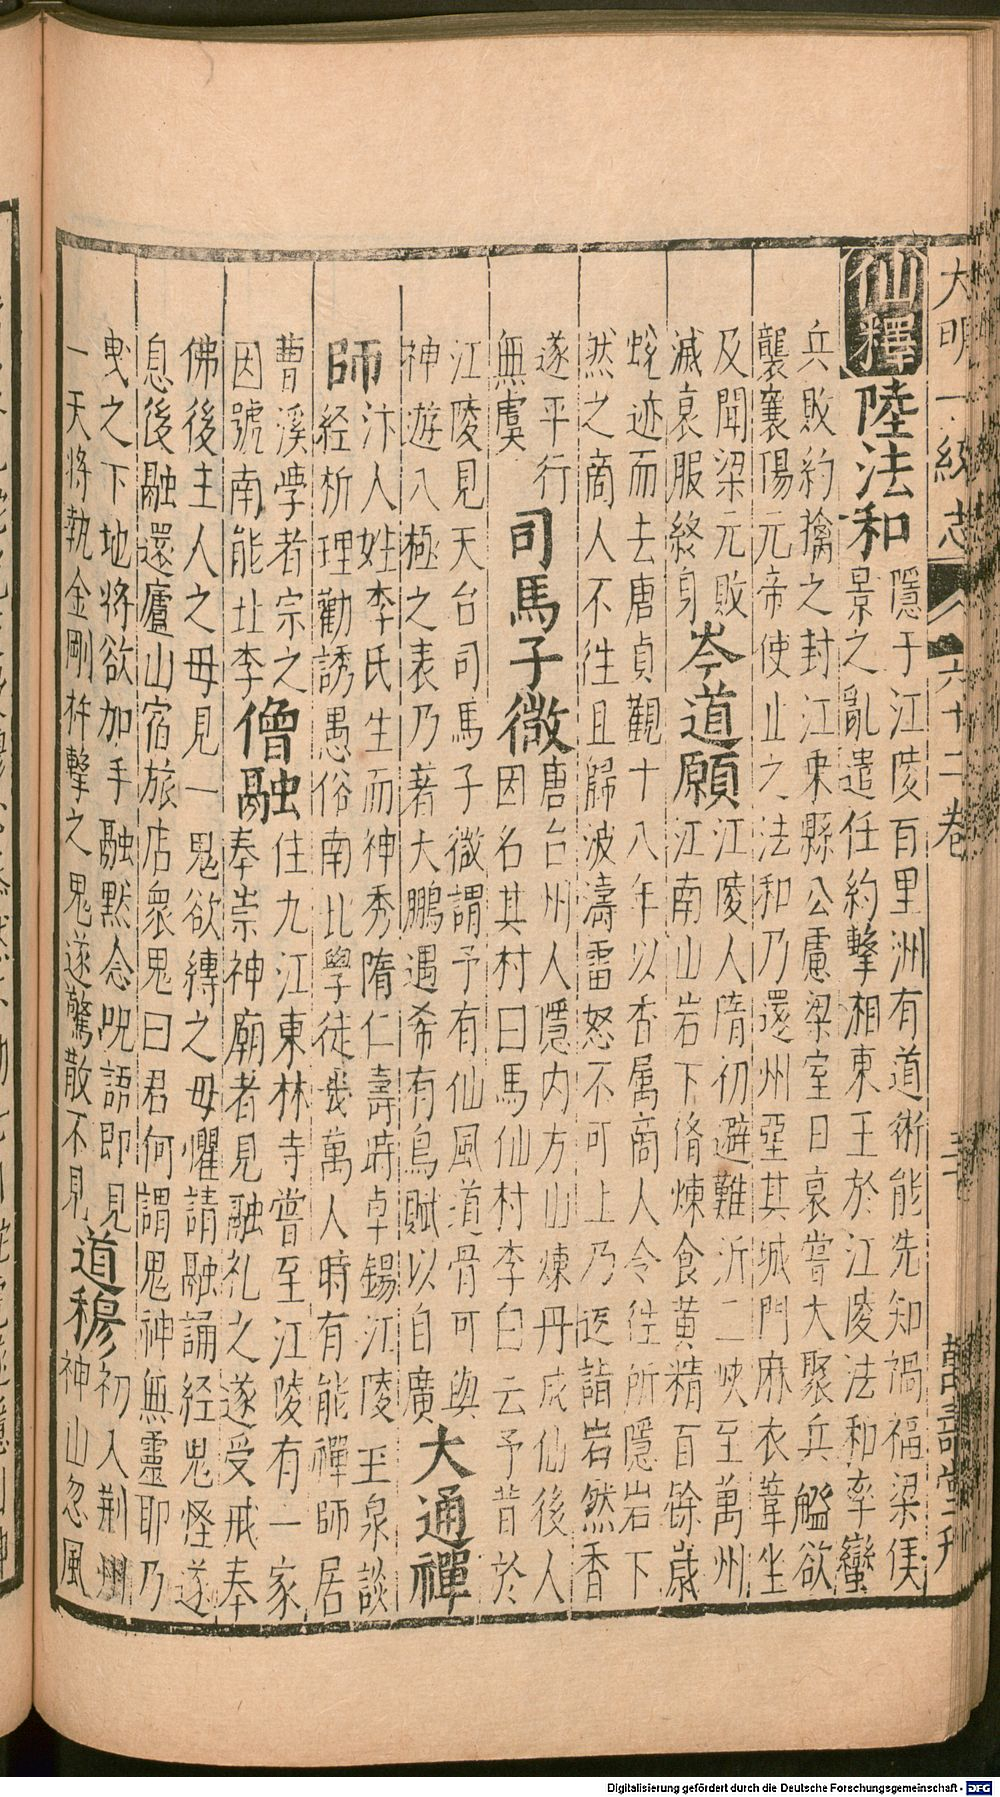 大明一統志 六十二卷
仙釋 陸法和
隱于江陵百里洲有道術能先知禍福梁侯
景之亂遣任約擊湘東王於江陵法和率蠻
兵敗約擒之封江東縣公慮梁室日衰嘗大聚兵艦欲
襲襄陽元帝使止之法和乃還州堊其城門麻衣葦坐
及聞梁元敗
滅衰服終身
岑道願
江陵人隋初避難泝二峽至萬州
江南山岩下脩煉食黃精百餘歲
蛻迹而去唐貞觀十八年以香属商人令往所隱岩下
然之商人不徃且歸波濤雷怒不可上乃返詣岩然香
遂平行
無虞
司馬子微
唐台州人隱内方山煉丹成仙後人
因名其村曰馬仙村李白云予昔於
江陵見天台司馬子微謂予有仙風道骨可與
神遊八極之表乃著大鵬遇希有鳥賦以自廣
大通禪
師
汴人姓李氏生而神秀隋仁壽時卓錫江陵玉泉談
経析理勸誘愚俗南北學徒幾萬人時有能禪師居
曹溪學者宗之
因號南能北李
僧融
住九江東林寺嘗至江陵有一家
奉崇神廟者見融礼之遂受戒奉
佛後主人之毋見一鬼欲縛之毋懼請融誦経鬼怪遂
息後融還廬山宿旅店衆鬼曰君何謂鬼神無靈耶乃
曵之下地將欲加手融黙念呪語即見
一天將執金剛杵擊之鬼遂驚散不見
道穆
初入荆州
神山忽風
Digitalisierung gefördert durch die Deutsche Forschungsgemeinschaft - DFG